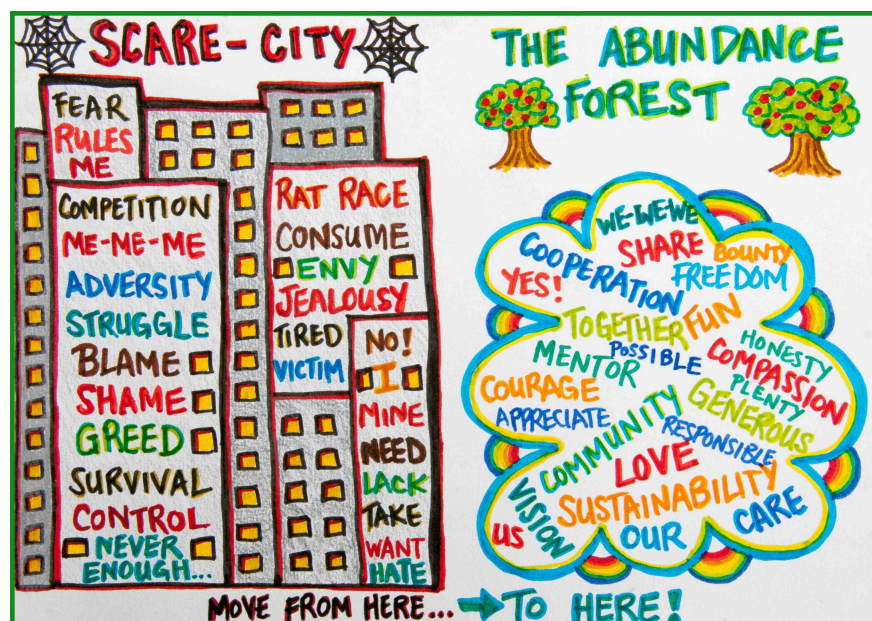 SCARE-CITY
FEAR
RULES
ME
COMPETITION
ME-ME-ME
ADVERSITY
STRUGGLE
BLAME
SHAME
GREED
SURVIVAL
CONTROL
NEVER
ENOUGH...
RAT RACE
CONSUME
ENVY
JEALOUSY
TIRED
VICTIM
NO!
I
MINE
NEED
LACK
TAKE
WANT
HATE
THE ABUNDANCE
FOREST
WE-WE-WE
SHARE
BOUNTY
COOPERATION
FREEDOM
YES!
TOGETHER
FUN
HONESTY
MENTOR
POSSIBLE
COMPASSION
COURAGE
PLENTY
GENEROUS
APPRECIATE
COMMUNITY
RESPONSIBLE
LOVE
VISION
SUSTAINABILITY
US
OUR
CARE
MOVE FROM HERE... TO HERE!